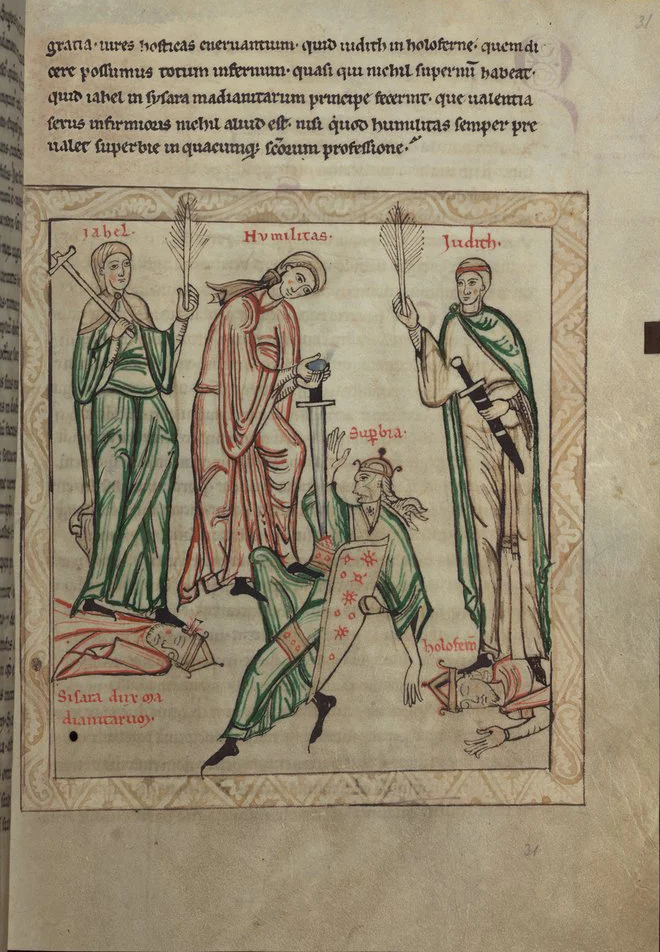 31
gratia · uires hosticas eneruantium · quid iudith in holoferne · quem di
cere possumus totum infernum · quasi qui nichil superiuũ habeat ·
quid iahel in sysara madianitarum principe fecerint · que ualentia
sexus infirmioris nichil aliud est · nisi quod humilitas semper pre
ualet superbie in quacumq; scõrum professione ·
Iahel ·
Humilitas ·
Judith ·
Supbia ·
holofern̄
Sisara dux ma
dianitaruꝫ ·
31